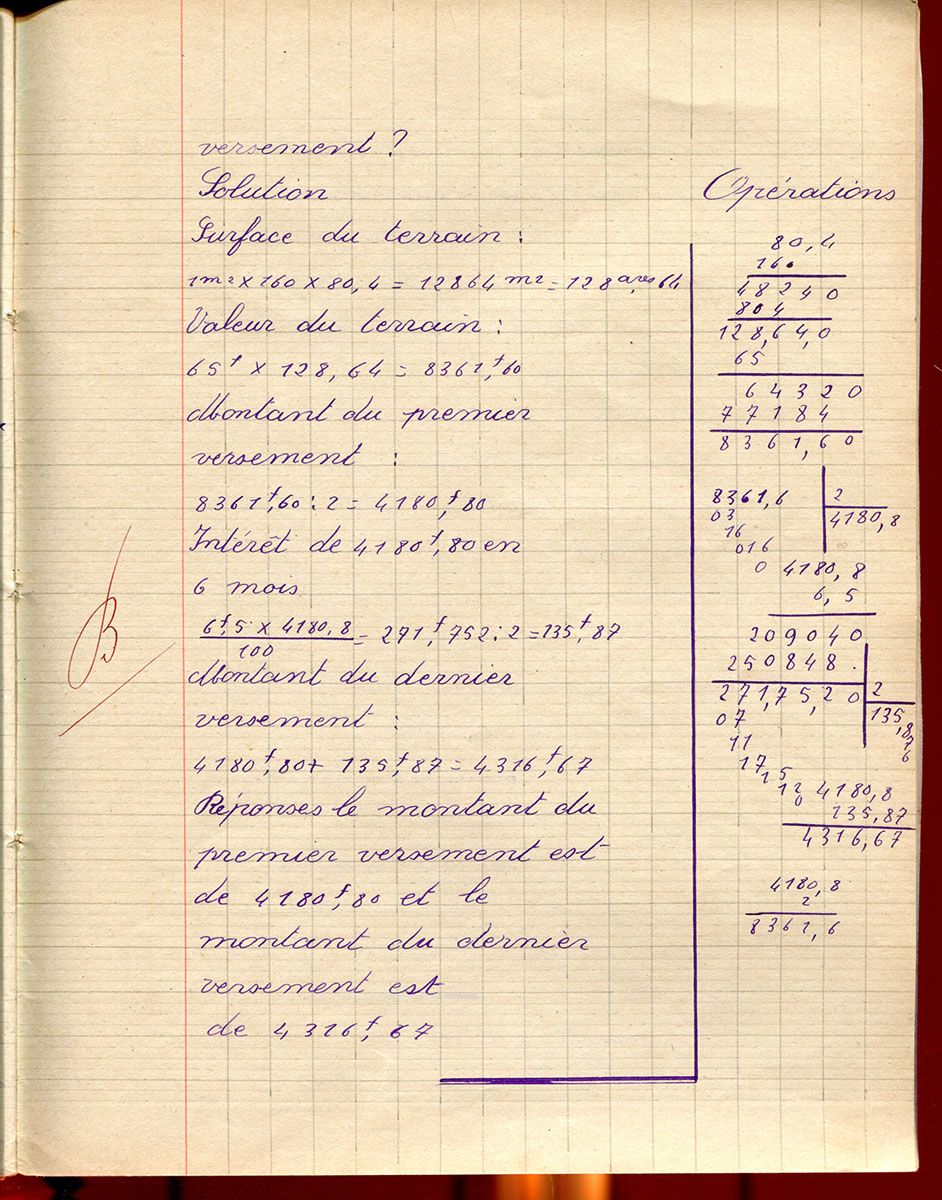 versement ?
Solution
Surface du terrain :
1m² × 160 × 80,4 = 12864 m² = 128 ares 64
Valeur du terrain :
65ᶠ × 128,64 = 8361ᶠ,60
Montant du premier
versement :
8361ᶠ,60 : 2 = 4180,ᶠ80
Intérêt de 4180ᶠ,80 en
6 mois
6ᶠ,5 × 4180,8 / 100 = 271,ᶠ752 : 2 = 135,ᶠ87
Montant du dernier
versement :
4180ᶠ,80 + 135ᶠ,87 = 4316ᶠ,67
Réponses le montant du
premier versement est
de 4180ᶠ,80 et le
montant du dernier
versement est
de 4316ᶠ,67
B
Opérations
80,4
160
48240
804
128,64,0
65
64320
77184
8361,60
8361,6 2
03 4180,8
16
016
0 4180,8
6,5
209040
250848 .
271,75,20 2
07 135,876
11
17
15
12 4180,8
0 135,87
4316,67
4180,8
2
8361,6